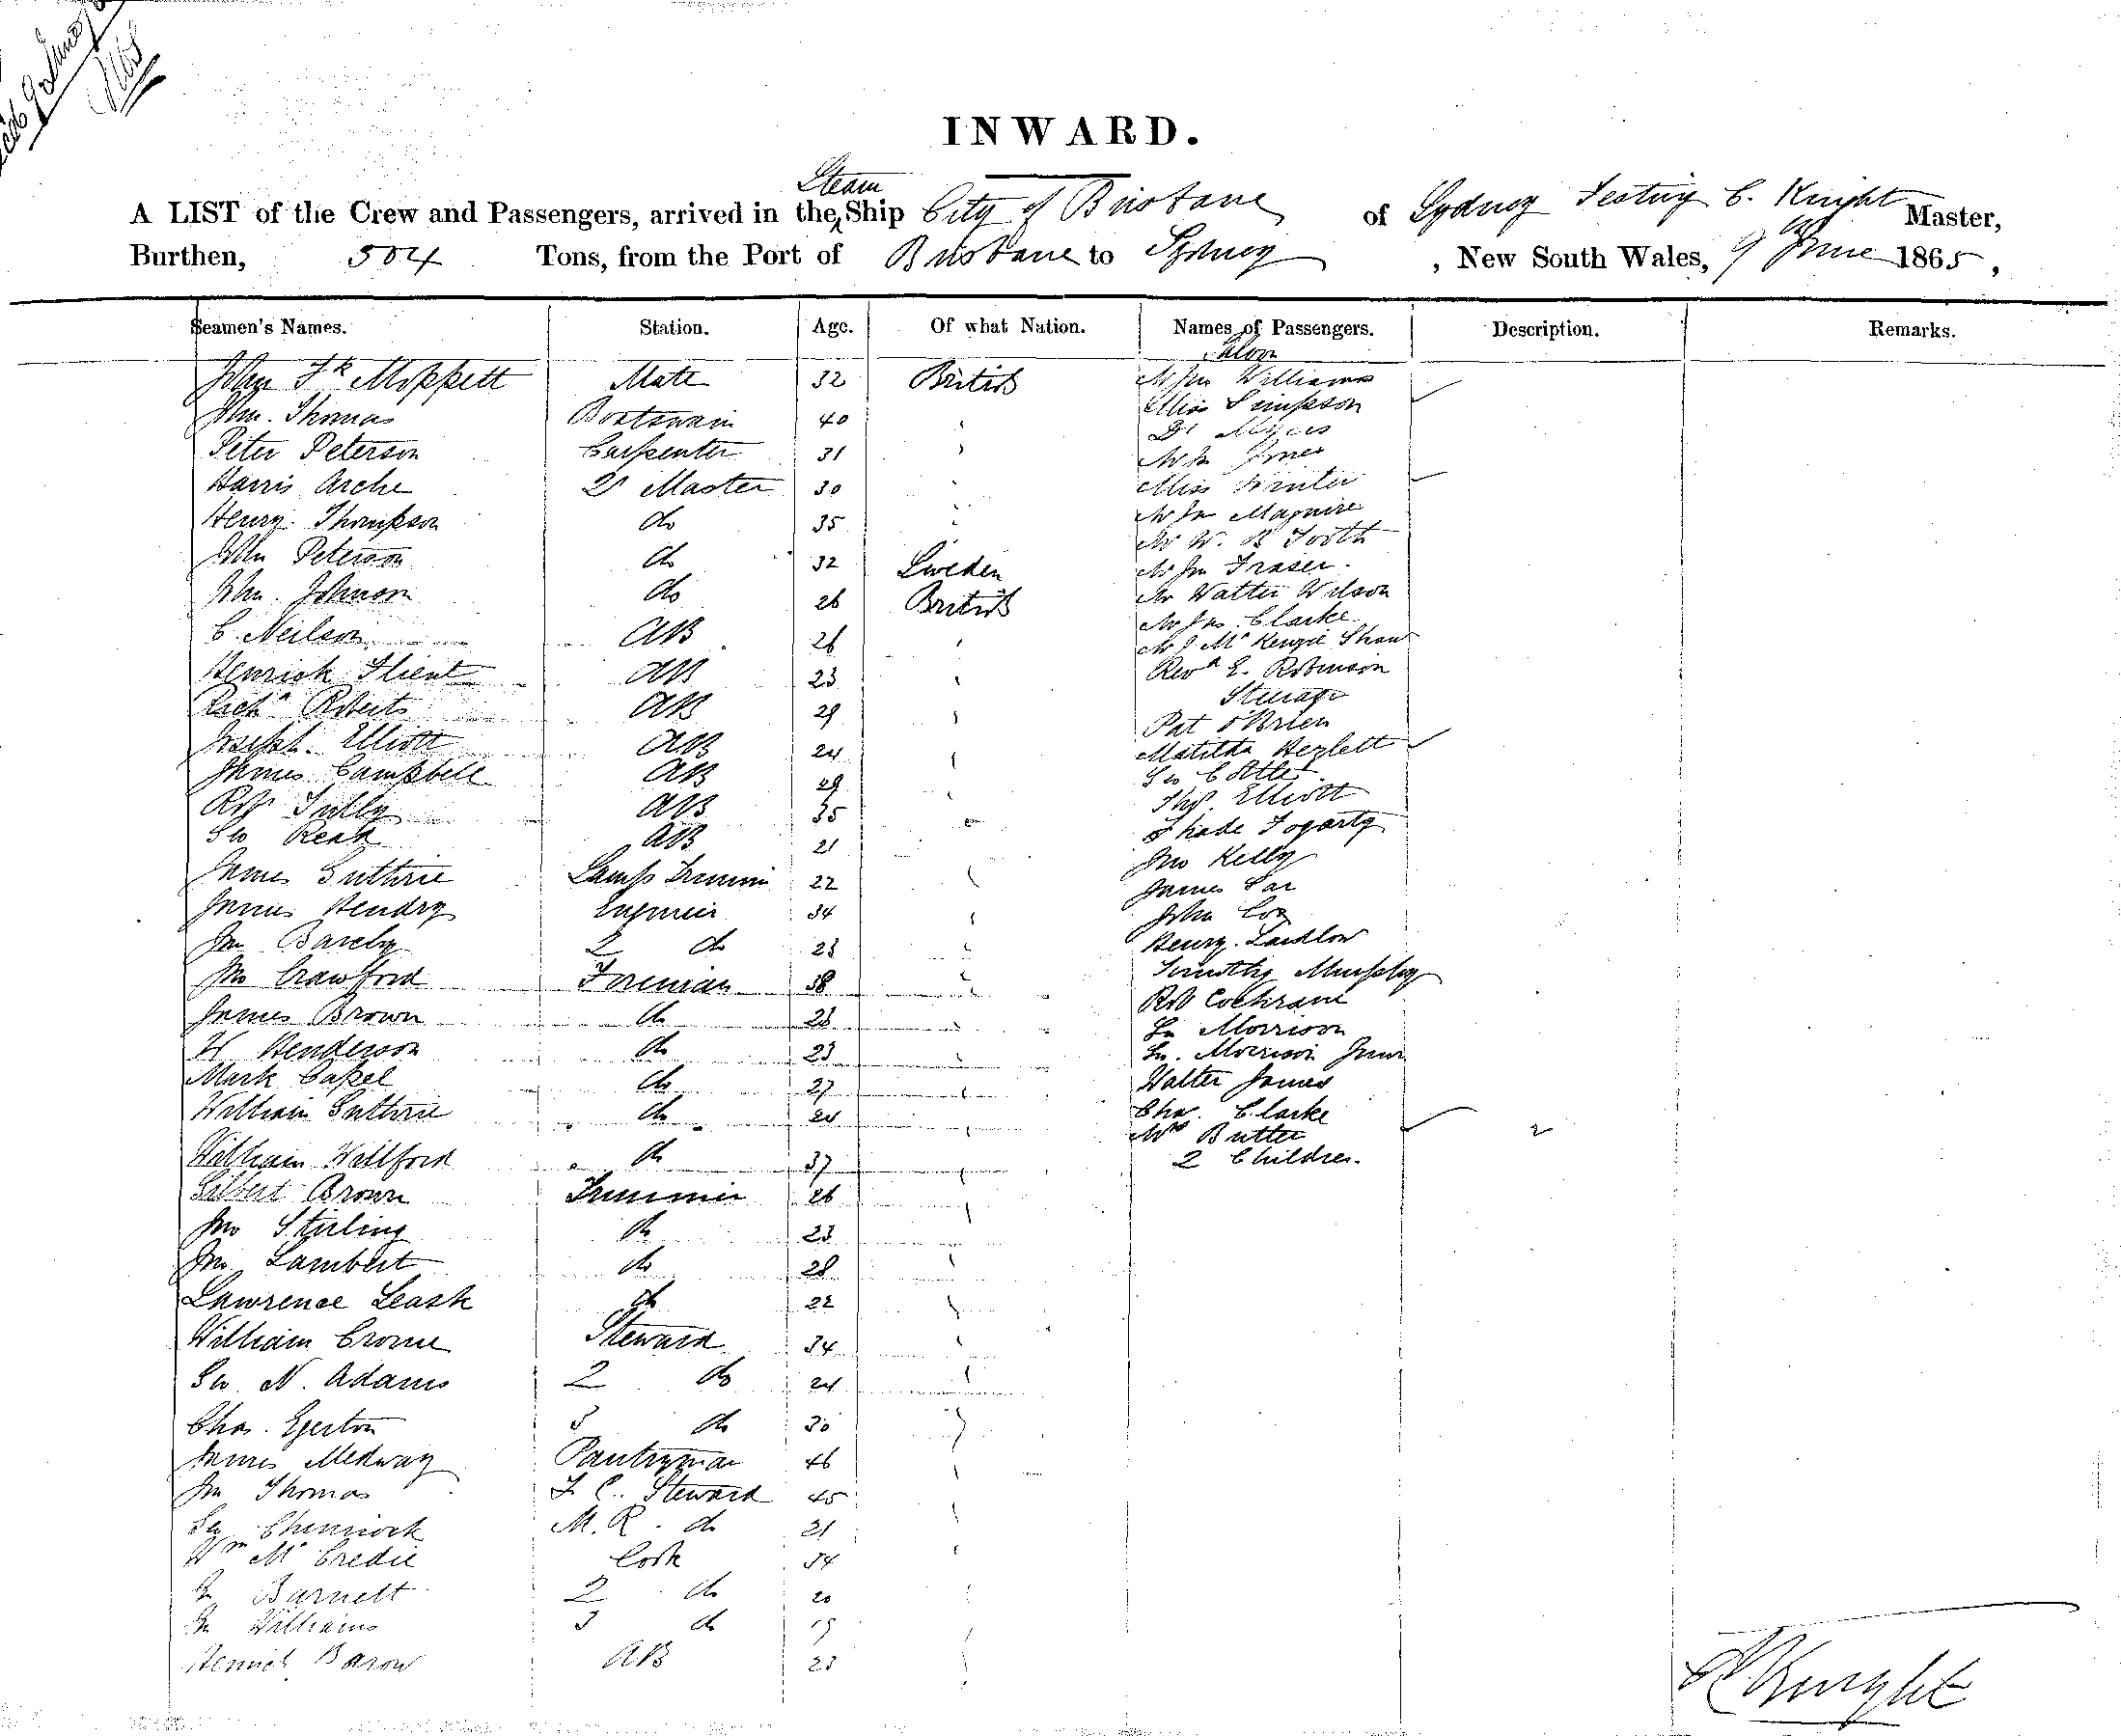 INWARD.
Steam
A LIST of the Crew and Passengers, arrived in the Ship City of Brisbane of Sydney Testing C. Knight Master,
Burthen, 504 Tons, from the Port of Brisbane to Sydney , New South Wales, 9 June 1865,
Seamen's Names. Station. Age. Of what Nation. Names of Passengers. Description. Remarks.
Saloon
John Fk Moppett Mate 32 British Mr Jno Williams
Miss Simpson
Jno. Thomas Boatswain 40 Dr Myers
Peter Peterson Carpenter 31 Mr Jno Jones
Harris Arche 2r Master 30 Miss Winter
Henry Thompson do 35 Mr Jn Maguire
Mr W. B Tooth
John Peterson do 32 Sweden Mr Jn Fraser.
John Johnson do 26 British Mr Walter Wilson
Mr Jas. Clarke
C. Neilson AB 26 Mr J. McKenzie Shaw
Henrick Flient AB 23 Revd E. Robinson
Steerage
Richd Roberts AB 29 Pat O'Brien
Joseph Elliott AB 24 Matilda Hezlett
James Campbell AB 29 Geo Cotter
Robt Tully AB 35 Thos. Elliott
Geo Reak AB 21 Thade Fogarty
Jno Kelly
James Guthrie Lamp Trimmer 22 James
James Hendry Engineer 34 John Cox
Jno Barclay 2 do 23 Henry Laidlow
Jno Crawford Foreman 38 Timothy Murphy
James Brown do 28 Robt Cochrane
Geo Morrison
W Henderson do 23 Geo. Morrison Junr
Mark Capel do 27 Walter James
William Guthrie do 24 Chas. Clarke
Mrs Butler 2
William Willford do 37 2 Children.
Gilbert Brown Trimmer 26
Jno Stirling do 23
Jno Lambert do 28
Lawrence Leask do 22
William Crome Steward 34
Geo N. Adams 2 do 24
Chas. Egerton 3 do 30
James Medway Pantryman 46
Jno Thomas F. C. Steward 45
Geo Chinnock M. R. do 21
Wm McCredie Cook 34
Barnett 2 do 20
Williams 3 do 19
Barow AB 23
C Knight